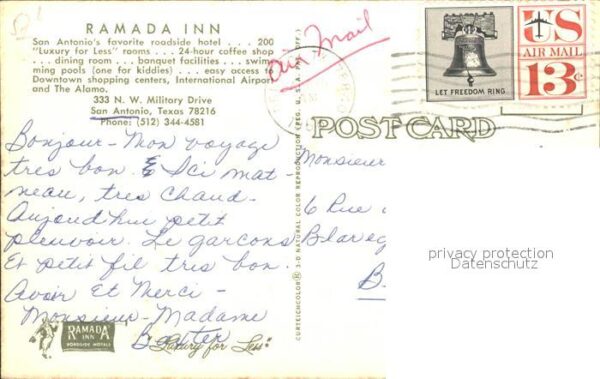 RAMADA INN
San Antonio's favorite roadside hotel . . . 200
"Luxury for Less" rooms . . . 24-hour coffee shop
. . . dining room . . . banquet facilities . . . swim-
ming pools (one for kiddies) . . . easy access to
Downtown shopping centers, International Airport
and The Alamo.
333 N. W. Military Drive
San Antonio, Texas 78216
Phone: (512) 344-4581
Air Mail
LET FREEDOM RING
US
AIR MAIL
13c
POST CARD
Bonjour - Mon voyage
tres bon. Ici mat-
neau, tres chaud.
Aujoud'hui petit
pleuvoir. Le garcons
Et petit fil tres bon.
Avoir Et Merci -
Monsieur - Madame
Baxter
Monsieur
6 Rue
Blareg
B
privacy protection
Datenschutz
CURTEICHCOLOR® 3-D NATURAL COLOR REPRODUCTION (REG. U.S.A. PAT. OFF.)
RAMADA
INN
ROADSIDE HOTELS
"Luxury for Less"